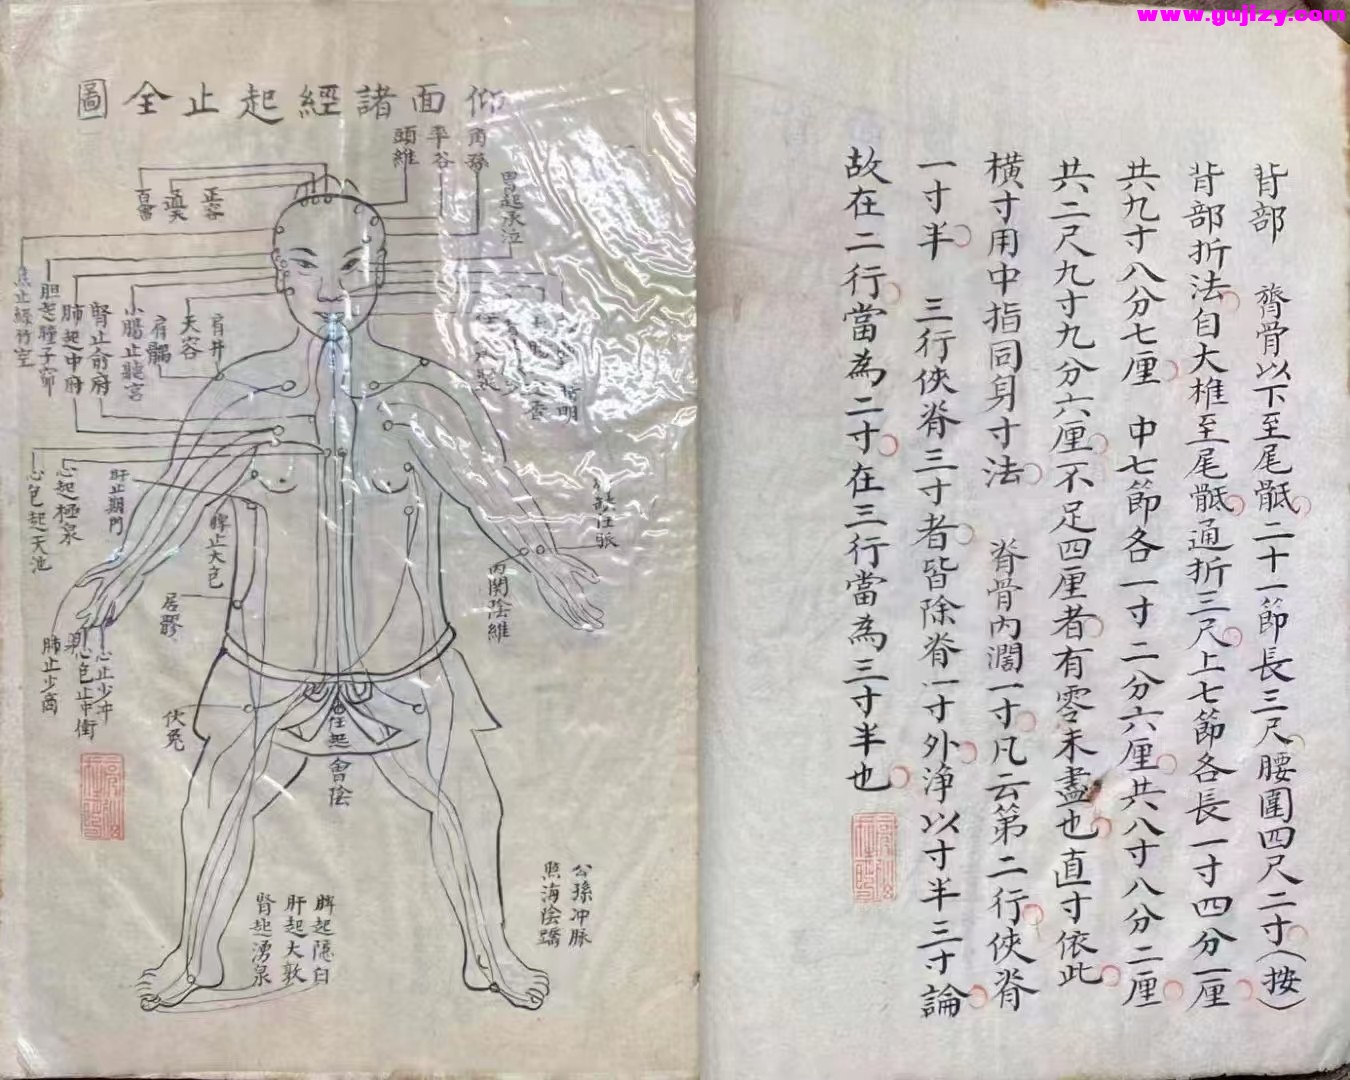 www.gujizy.com
背部　膂骨以下至尾骶二十一節長三尺腰圍四尺二寸（按）
背部折法自大椎至尾骶通折三尺上七節各長一寸四分一厘
共九寸八分七厘　中七節各一寸二分六厘共八寸八分二厘
共二尺九寸九分六厘不足四厘者有零未盡也直寸依此
橫寸用中指同身寸法　脊骨內濶一寸凡云第二行俠脊
一寸半　三行俠脊三寸者皆除脊一寸外淨以寸半三寸論
故在二行當為二寸在三行當為三寸半也
仰面諸經起止全圖
角孫
平谷
頭維
胃起承泣
正容
通天
百會
焦止絲竹空
胆起瞳子窌
肺起中府
腎止俞府
小腸止聽宮
肩髃
天容
肩井
睛明
香
心包起天池
心起極泉
肝止期門
脾止大包
居髎
伏兔
內関陰維
肺止少商
心包止中衝
心止少冲
任起
會陰
公孫冲脉
照海陰蹻
脾起隱白
肝起大敦
腎起湧泉